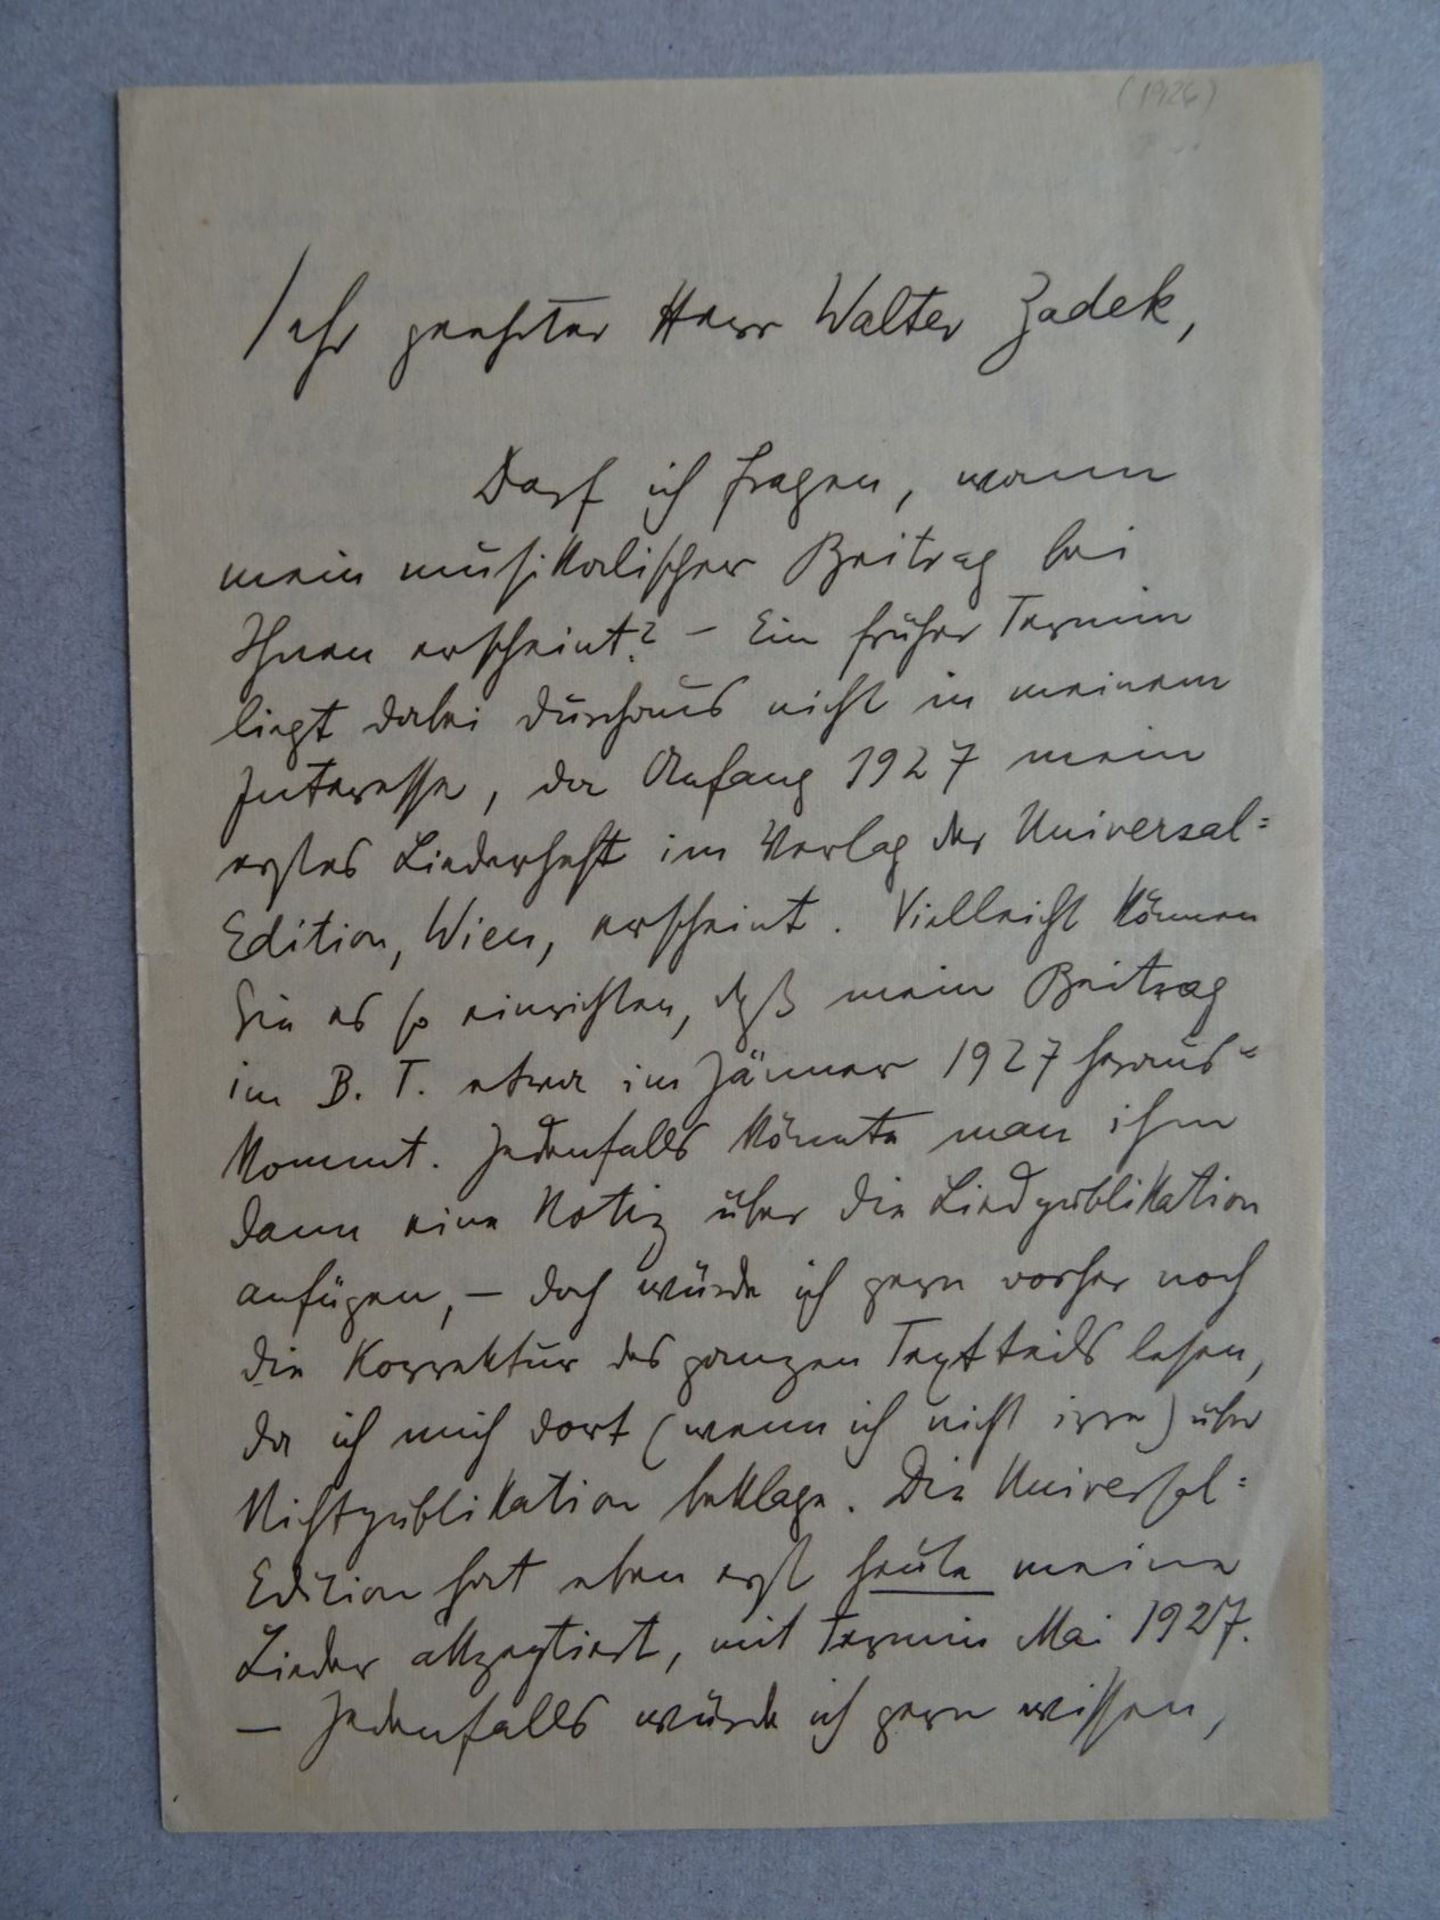 (1926)
Sehr geehrter Herr Walter Zadek,
Darf ich fragen, wann
mein musikalischer Beitrag bei
Ihnen erscheint? – Ein früher Termin
liegt dabei durchaus nicht in meinem
Interesse, da Anfang 1927 mein
erstes Liederheft im Verlag der Universal=
Edition, Wien, erscheint. Vielleicht können
Sie es so einrichten, daß mein Beitrag
im B. T. etwa im Jänner 1927 heraus=
kommt. Jedenfalls könnte man ihm
dann eine Notiz über die Liedpublikation
anfügen, – doch würde ich gern vorher noch
die Korrektur des ganzen Textteils lesen,
da ich mich dort (wenn ich nicht irre) über
Nichtpublikation beklage. Die Universal=
Edition hat eben erst heute meine
Lieder akzeptiert, mit Termin Mai 1927.
– Jedenfalls würde ich gern wissen,